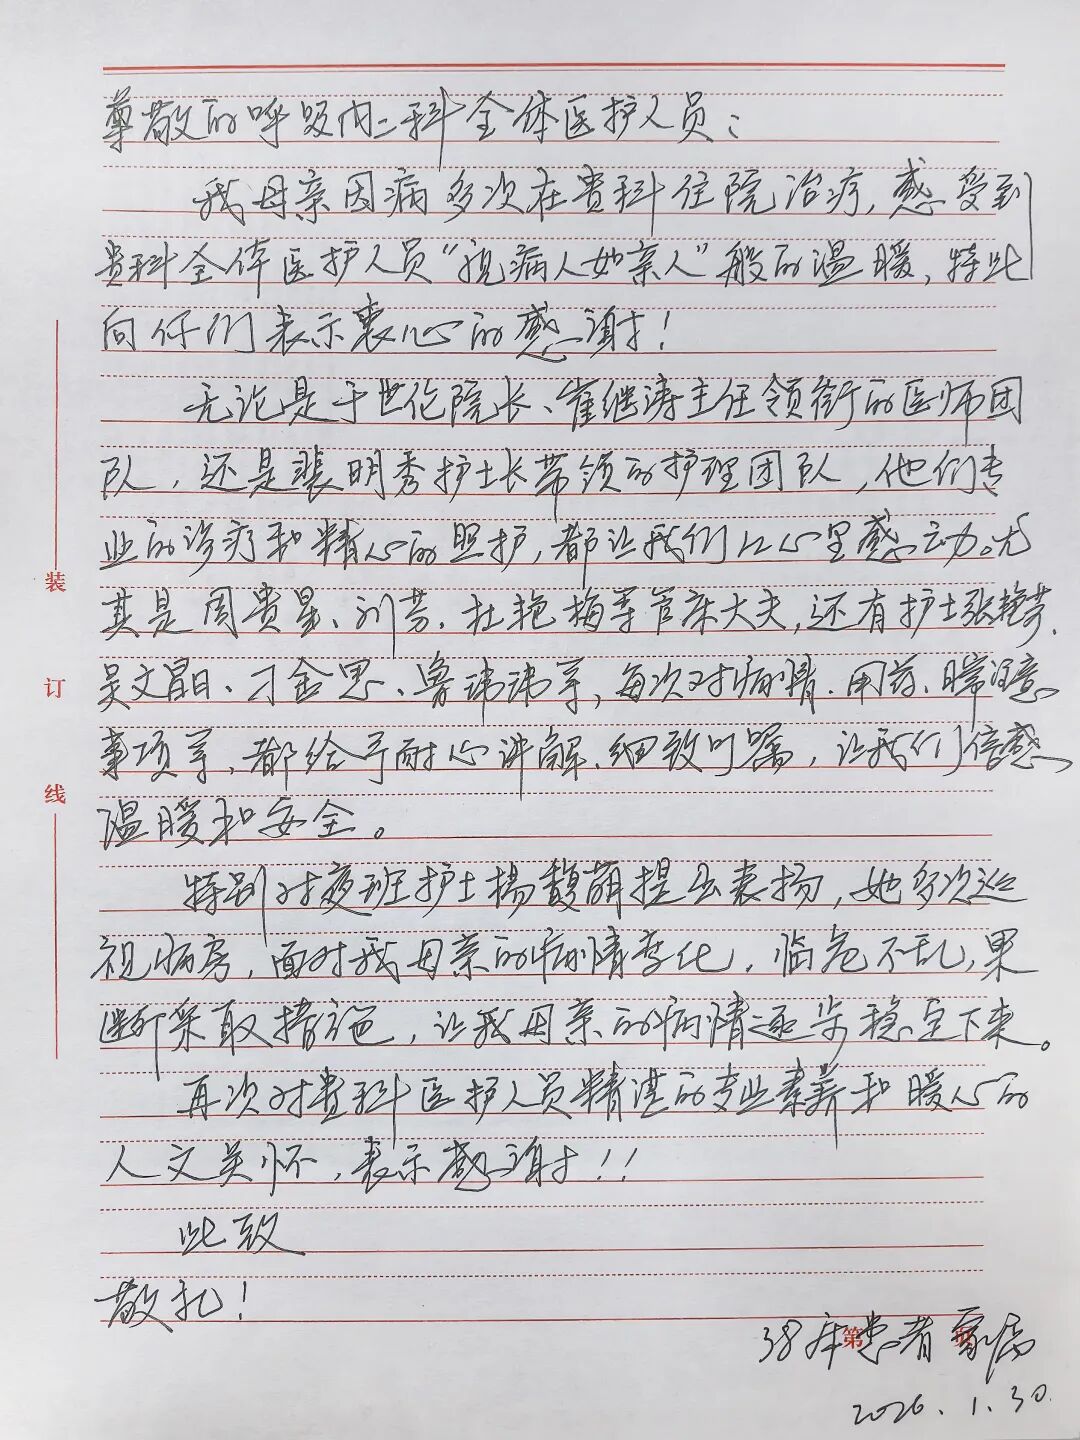 尊敬的呼吸内二科全体医护人员：
我母亲因病多次在贵科住院治疗,感受到
贵科全体医护人员“视病人如亲人”般的温暖,特此
向你们表示衷心的感谢!
无论是于世伦院长、崔继涛主任领衔的医师团
队,还是裴明秀护士长带领的护理团队,他们专
业的诊疗和精心的照护,都让我们从心里感动。尤
其是周贵星、刘芳、杜艳梅等管床大夫,还有护士张艳芳、
吴文昌、刁金思、鲁玮玮等,每次对病情、用药、日常注意
事项等,都给予耐心讲解、细致叮嘱,让我们倍感
温暖和安全。
特别对夜班护士杨馥萌提出表扬,她多次巡
视病房,面对我母亲的病情变化,临危不乱,果
断采取措施,让我母亲的病情逐步稳定下来。
再次对贵科医护人员精湛的专业素养和暖心的
人文关怀,表示感谢!!
此致
敬礼!
38床患者家属
2026.1.30
装
订
线
第